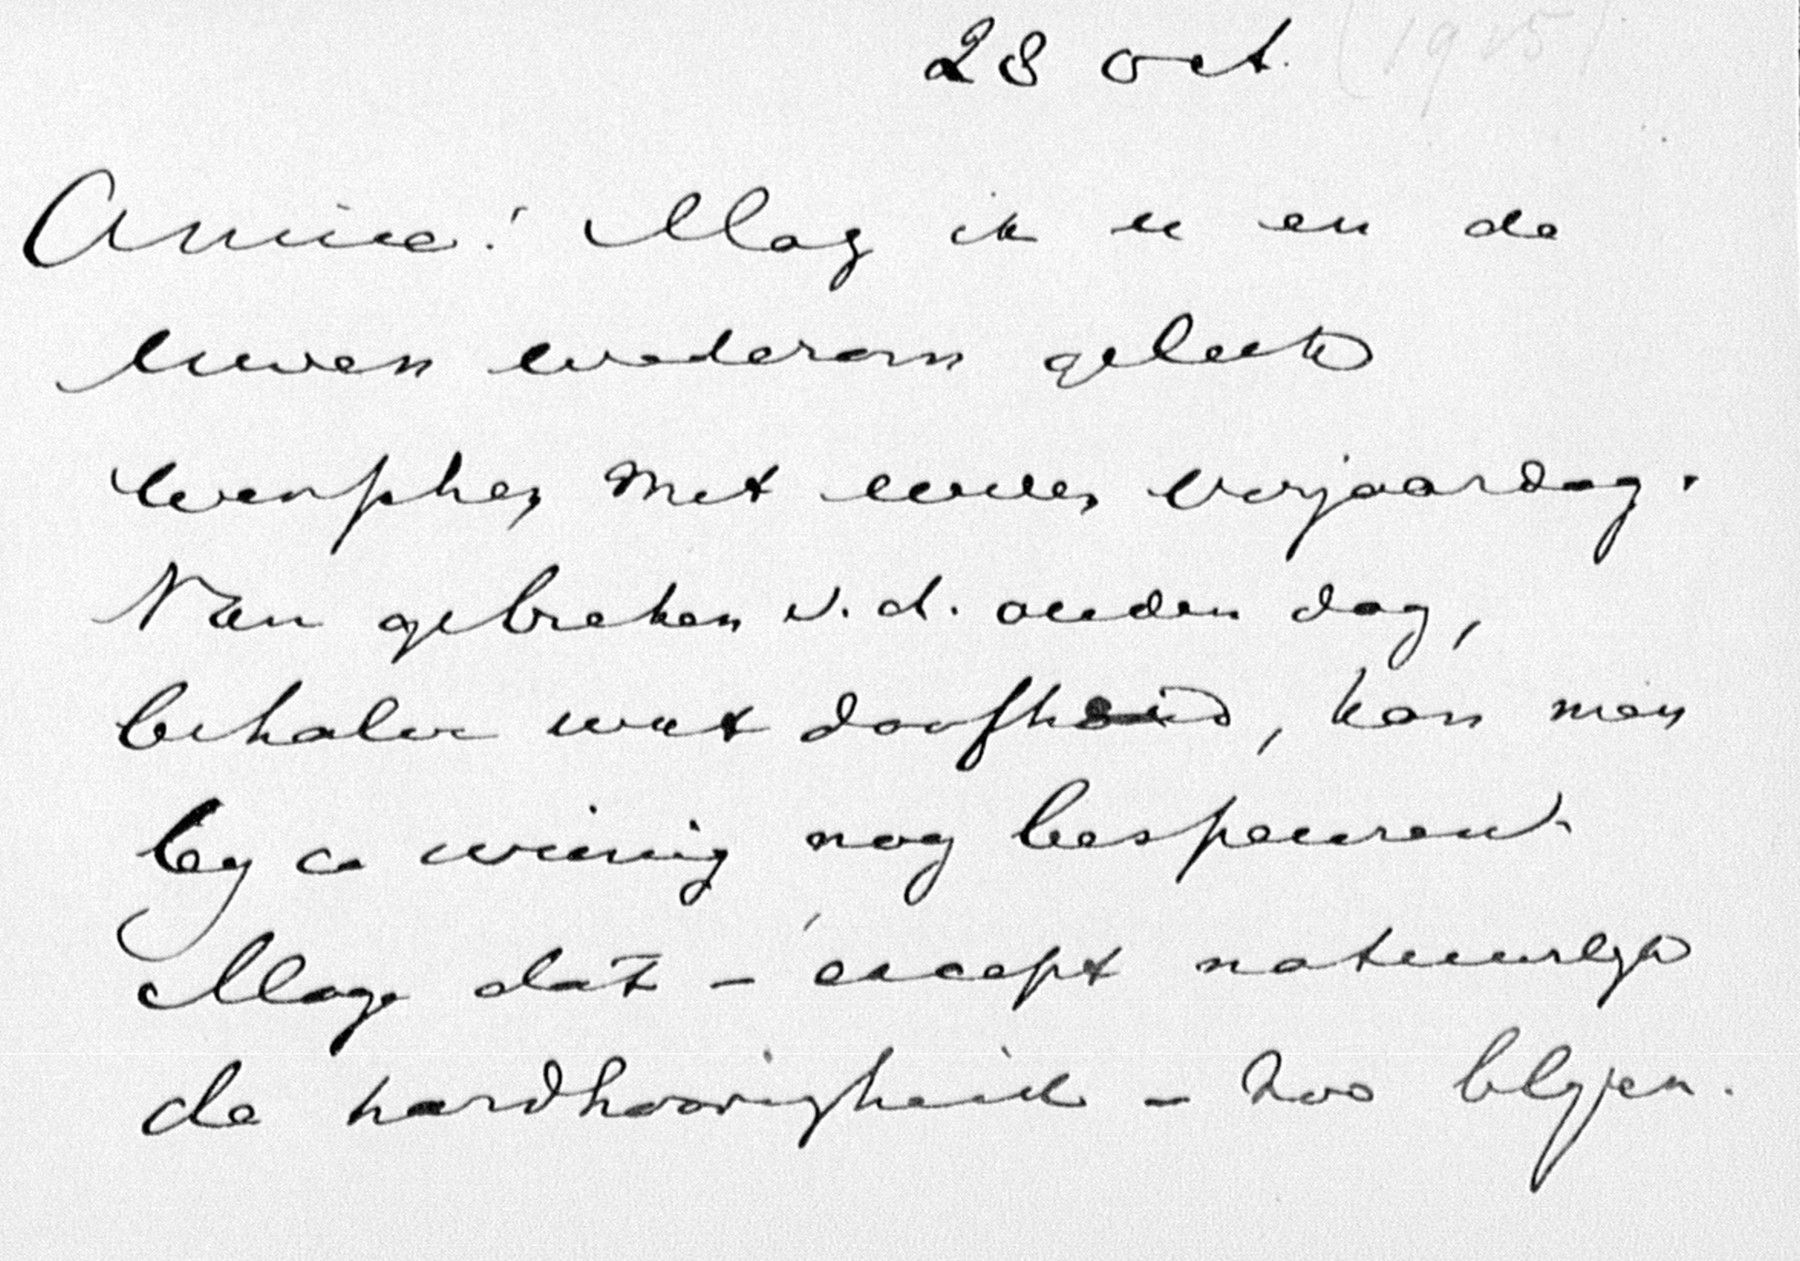 28 oct. (1915)
Amice! Mag ik u en de
uwen wederom geluk
wenschen met uwen verjaardag.
Van gebreken v.d. ouden dag,
behalve wat doofheid, kan men
by u weinig nog bespeuren.
Moge dat – except natuurlyk
de hardhoorigheid – zoo blyven.